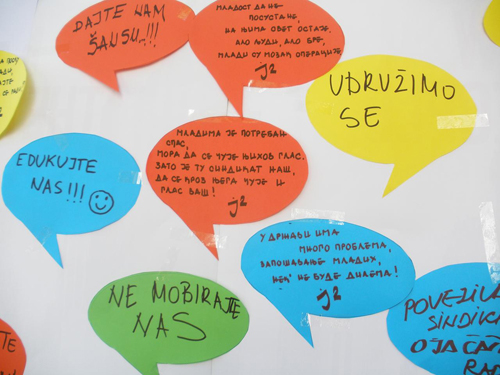 DAJTE NAM
ŠANSU..!!!
МЛАДОСТ ДА НЕ
ПОСУСТАНЕ,
НА ЊИМА СВЕТ ОСТАЈЕ,
АЛО ЉУДИ, АЛО БРЕ,
МЛАДИ СУ МОЗАК ОПЕРАЦИЈЕ
ј2
UDRUŽIMO
SE
EDUKUJTE
NAS!!!
МЛАДИМА ЈЕ ПОТРЕБАН
СПАС,
МОРА ДА СЕ ЧУЈЕ ЊИХОВ ГЛАС.
ЗАТО ЈЕ ТУ СИНДИКАТ НАШ,
ДА СЕ КРОЗ ЊЕГА ЧУЈЕ И
ГЛАС ВАШ!
ј2
У ДРЖАВИ ИМА
МНОГО ПРОБЛЕМА,
ЗАПОШЉАВАЊЕ МЛАДИХ,
НЕК' НЕ БУДЕ ДИЛЕМА!
ј2
NE MOBIRAJTE
NAS